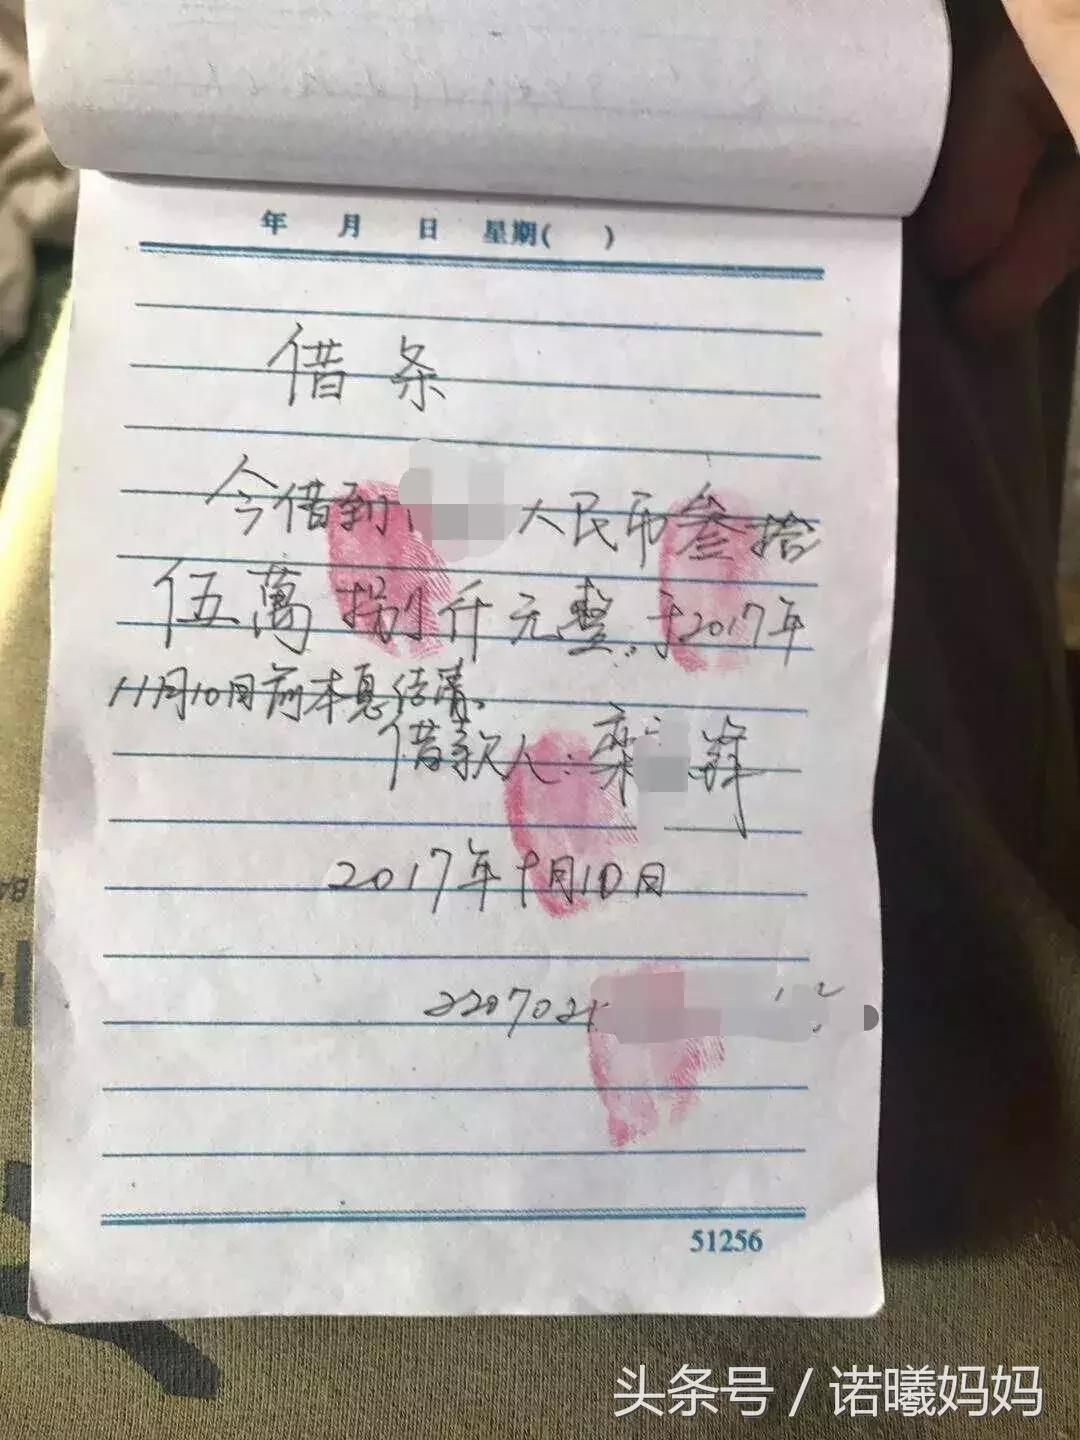 年 月 日 星期( )
借条
今借到 人民币叁拾
伍萬捌仟元整.于2017年
11月10日前本息结清。
借款人:栾 辉
2017年十月10日
2207021
51256
头条号 / 诺曦妈妈